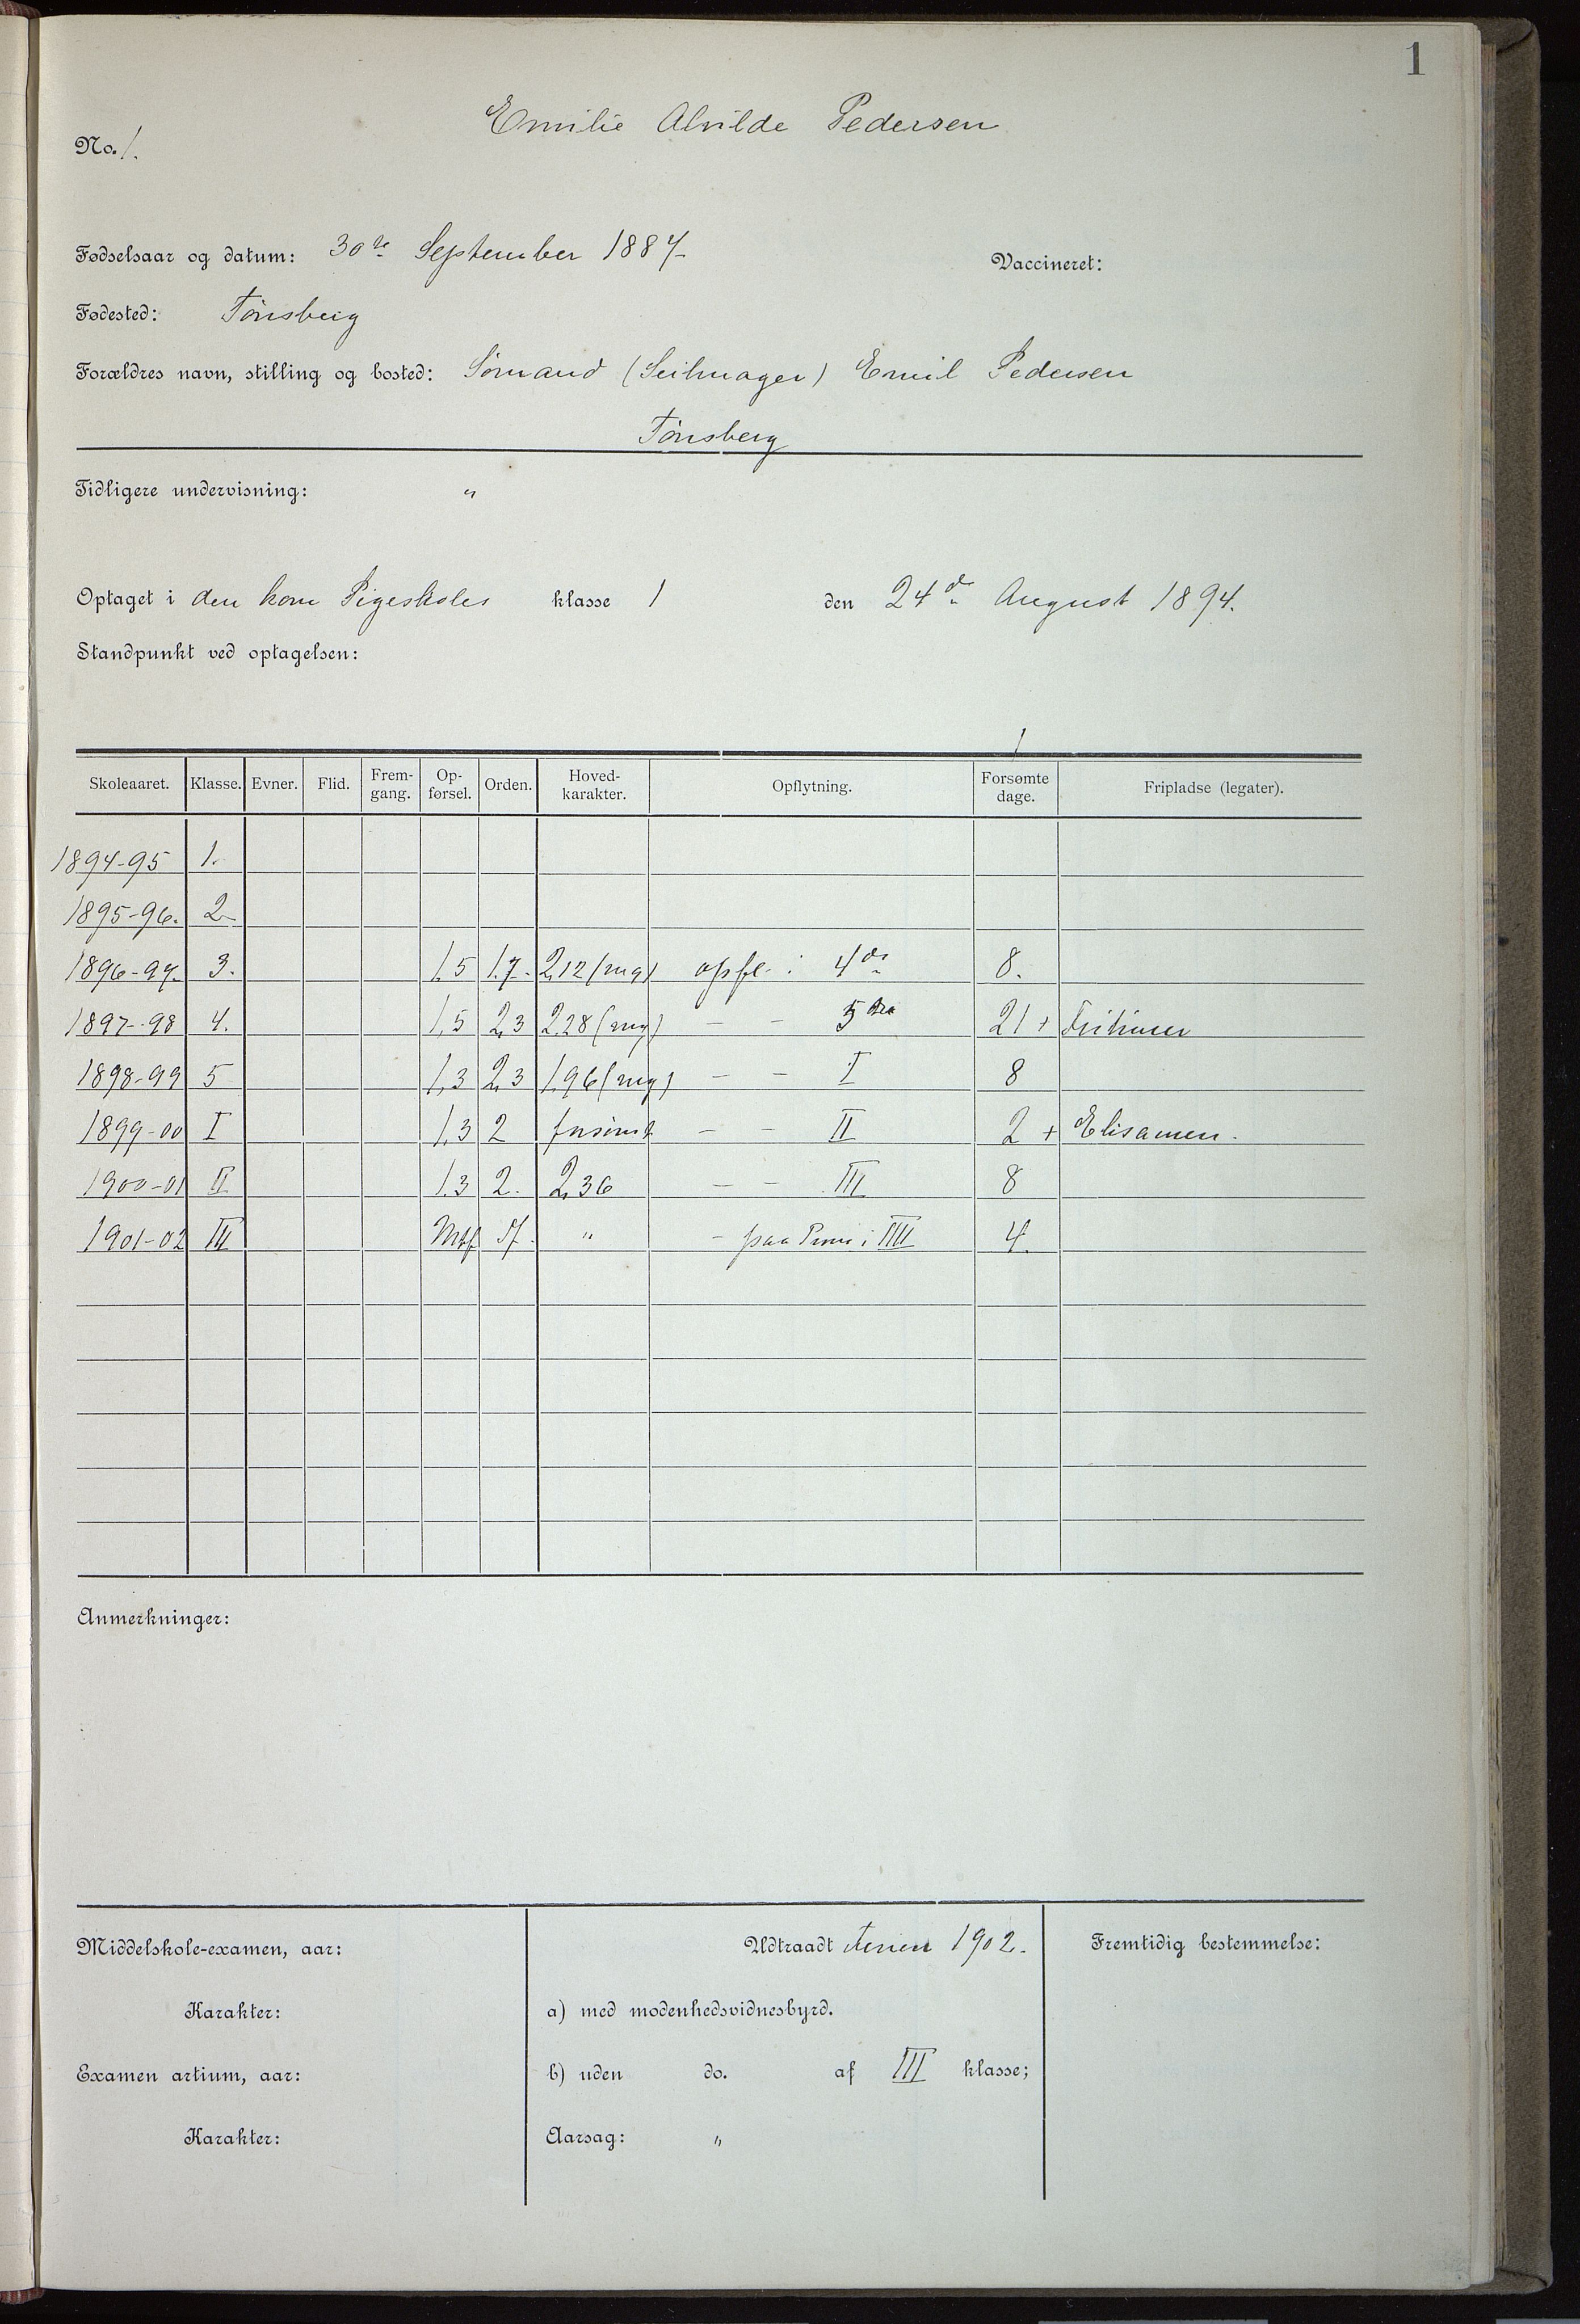 1
Emilie Alvilde Pedersen
No. 1.
Fødselsaar og datum: 30te September 1887 Vaccineret:
Fødested: Tönsberg
Forældres navn, stilling og bosted: Sömand (Seilmager) Emil Pedersen
Tönsberg
Tidligere undervisning: "
Optaget i den kom Pigeskoles klasse 1 den 24de August 1894.
Standpunkt ved optagelsen:
Skoleaaret. Klasse. Evner. Flid. Frem-gang. Op-førsel. Orden. Hoved-karakter. Opflytning. Forsømte dage. Fripladse (legater).
1894-95 1.
1895-96. 2
1896-97. 3. 1,5 1.7. 2,12 (mg) opfl. i 4de 8.
1897-98 4. 1,5 2,3 2,28 (mg) — — 5te 21 + Fritimer
1898-99 5 1,3 2,3 1,96 (mg) — — I 8
1899-00 I 1,3 2 forsömt — — II 2 + Eksamen.
1900-01 II 1.3 2. 2,36 — — III 8
1901-02 III Mtf " - paa Prøve i IIII 4.
Anmerkninger:
Middelskole-examen, aar:
Karakter:
Examen artium, aar:
Karakter:
Udtraadt Ferien 1902.
a) med modenhedsvidnesbyrd.
b) uden do. af III klasse;
Aarsag: "
Fremtidig bestemmelse: